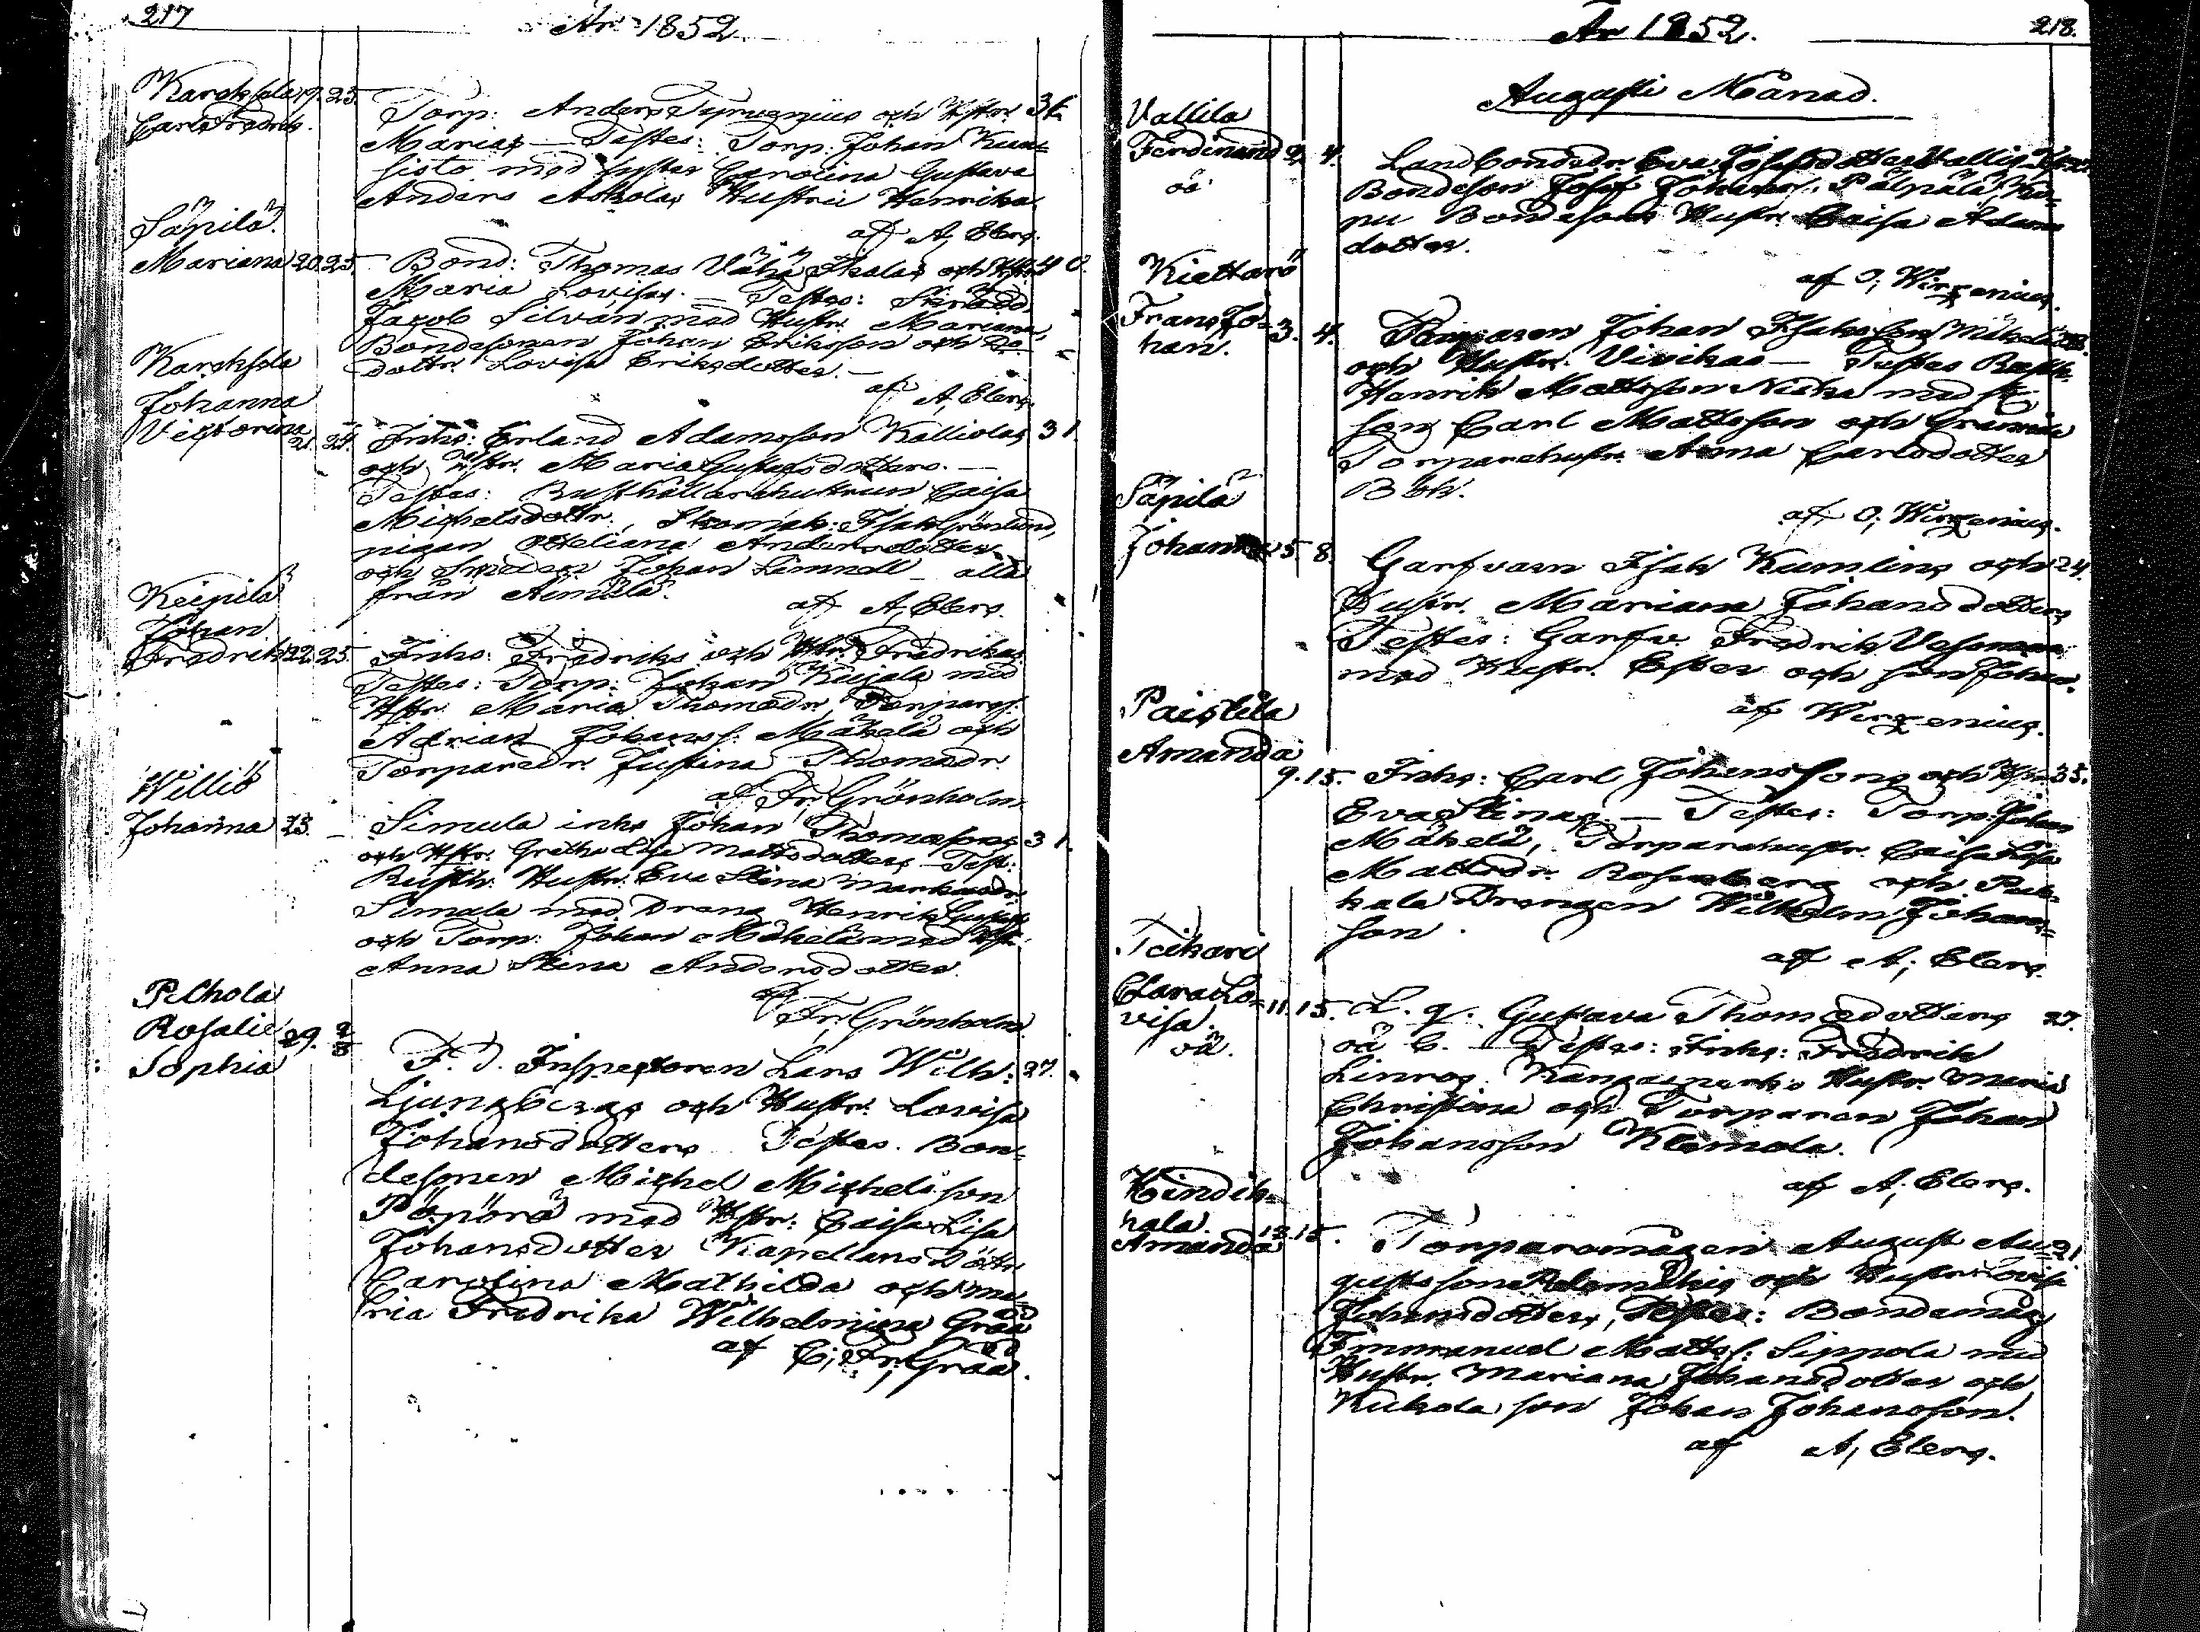 217
År 1852.
Karohsola 19. 25.
Carl Fredrik.
Torp: Anders Syrenius och Hstr. 36
Maria; — Testes: Torp: Johan Kun=
sisto med syster Carolina Gustava
Anders Hustru Henrika
af A, Elers.
Säpilä.
Mariana 20. 25.
Bond: Thomas Vähä och Hstr. 40.
Maria Lovisa. — Testes:
Jacob Silvän med Hustr. Mariana,
Bondesonen Johan Eriksson och
dottr. Lovisa Eriksdotter. —
af A, Elers.
Karohsola
Johanna
Victorina 21. 25.
Inhs: Erland Adamsson Kalliola; 31.
och Hstr. Maria Gustafsdotters. —
Testes: Rusthållarehustrun Caisa
Michelsdottr., Isak Grönlund,
pigan Andersdotter
och Smeden Johan Limnell alla
från Aimälä.
af A, Elers.
Keipilä
Johan
Fredrik 22. 25.
Inhs: Fredriks och Hstr. Fredrikas
Testes: Torp: Johan Kujala med
Hstr. Maria Thomasdr., Torpares.
Adrian Johanss. Mäkelä och
Torparedr. Justina Thomasdr.
af Fr. Grönholm.
Williö
Johanna 23. —
Simula inhs Johan Thomassons 31.
och Hstr. Greta Lisa Mattsdotters — Test:
Rusth. Hustr. Eva Stina
Simula med Dreng Henrik
och Torp. Johan Mäkelä med Hstr.
Anna Stina Andersdotter.
af
Fr. Grönholm
Pelhola
Rosalie 29. 2/8
Sophia
F. d. Inspectoren Lars Wilh: 27.
Ljungbergs och Hustr. Lovisa
Johansdotters Testes. Bon=
desonen Michel Michelsson
Pöpörö med Hstr. Caisa Lisa
Johansdotter Kapellans Döttr.
Carolina Mathilda och Ma=
ria Fredrika Wilhelmina Gråå
af C, Fr, Gråå.
År 1852.
218.
Augusti Månad.
Vallila
Ferdinand 2. 4.
oä
Landbondedr. Eva
Bondeson Josef Johanss. Pälpälä,
Bondesons Hustr. Caisa Adams
dotter.
af O, Wirzenius.
Kiettarö
Frans Jo= 3. 4.
han.
Torparen Johan Isaksson
och Hustr. Vivikas — Testes
Henrik Mattsson Niska med
son Carl Mattsson och
Torparehustr. Anna Carlsdotter
Böh.
af O, Wirzenius.
Säpilä
Johanna 5. 8.
Garfvaren Isak Kumlins och 24.
Hustr. Mariana Johansdotters
Testes: Garfv. Fredrik
med Hustr. Ester och son Johan.
af Wirzenius.
Paistila
Amanda
9. 15. Inhs: Carl Johanssons och Hstr. 35.
Eva Stinas — Testes: Torp: Johan
Mäkelä, Torparehustr. Caisa Lisa
Mattsdr. Rosenberg och
kala Drengen Wilhelm Johans=
son.
af A, Elers.
Teikari
Clara Lo= 11. 15.
visa.
oä.
L. q. Gustava Thomasdotters 27.
oä b. — Testes: Inhs: Fredrik
Linros Hustr. Maria
Christina och Torparen Johan
Johansson Klemola.
af A, Elers.
Hindik=
kala
Amanda 12. 15.
Torparemågen August Au= 21
gustsson och Hustr. Lovisa
Johansdotters, Testes: Bondemåg
Emmanuel Matts. Sippola med
Hustr. Mariana Johansdotter och
Kukola son Johan Johansson.
af A, Elers.